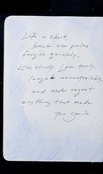 Life is short,
break the rules
forgive quickly,
Kiss slowly, Love truly,
laugh uncontrollably
and never regret
anything that made
you smile